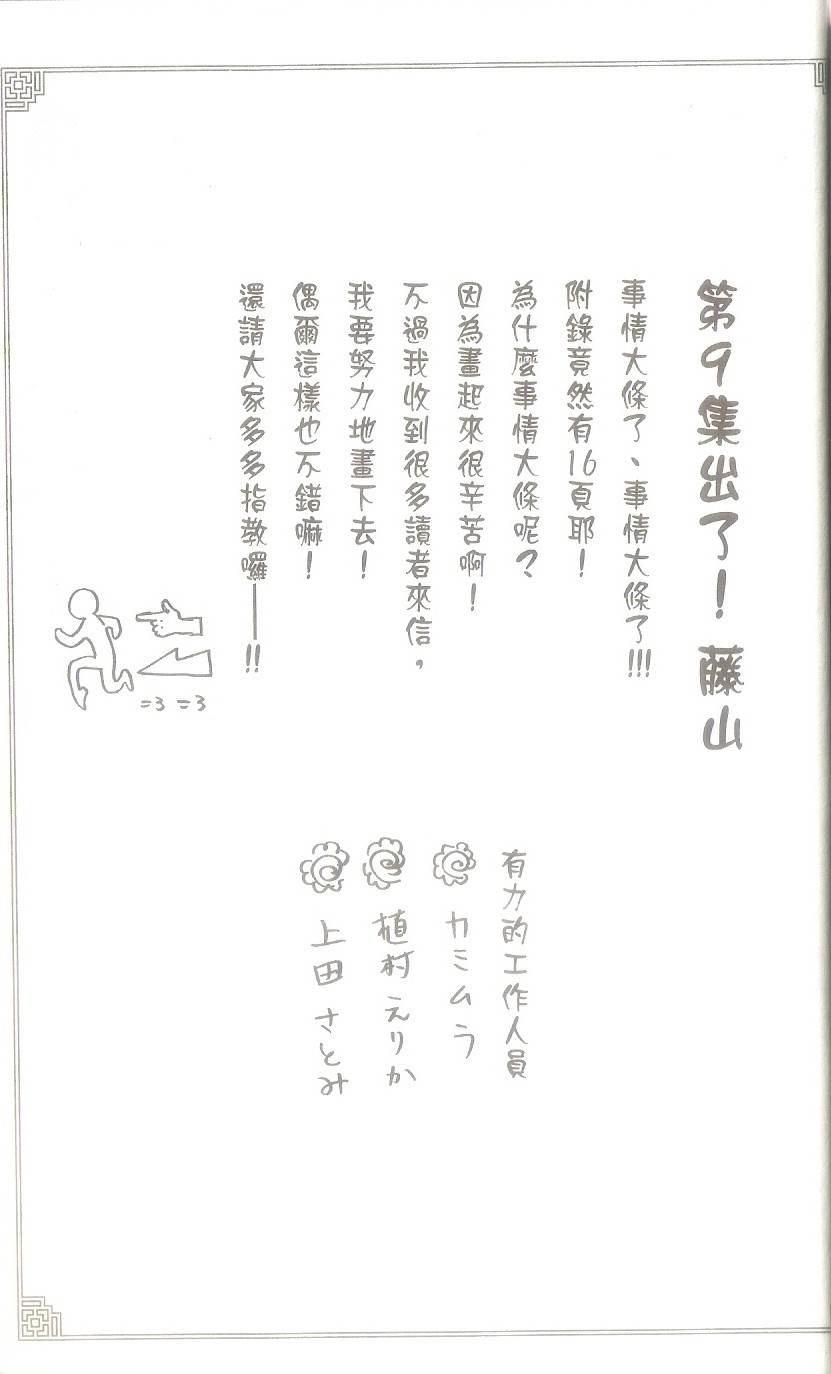 第9集出了！ 藤山
事情大條了、事情大條了!!!
附錄竟然有16頁耶！
為什麼事情大條呢？
因為畫起來很辛苦啊！
不過我收到很多讀者來信，
我要努力地畫下去！
偶爾這樣也不錯嘛！
還請大家多多指教囉——!!
=3 =3
有力的工作人員
カミムラ
植村えりか
上田さとみ